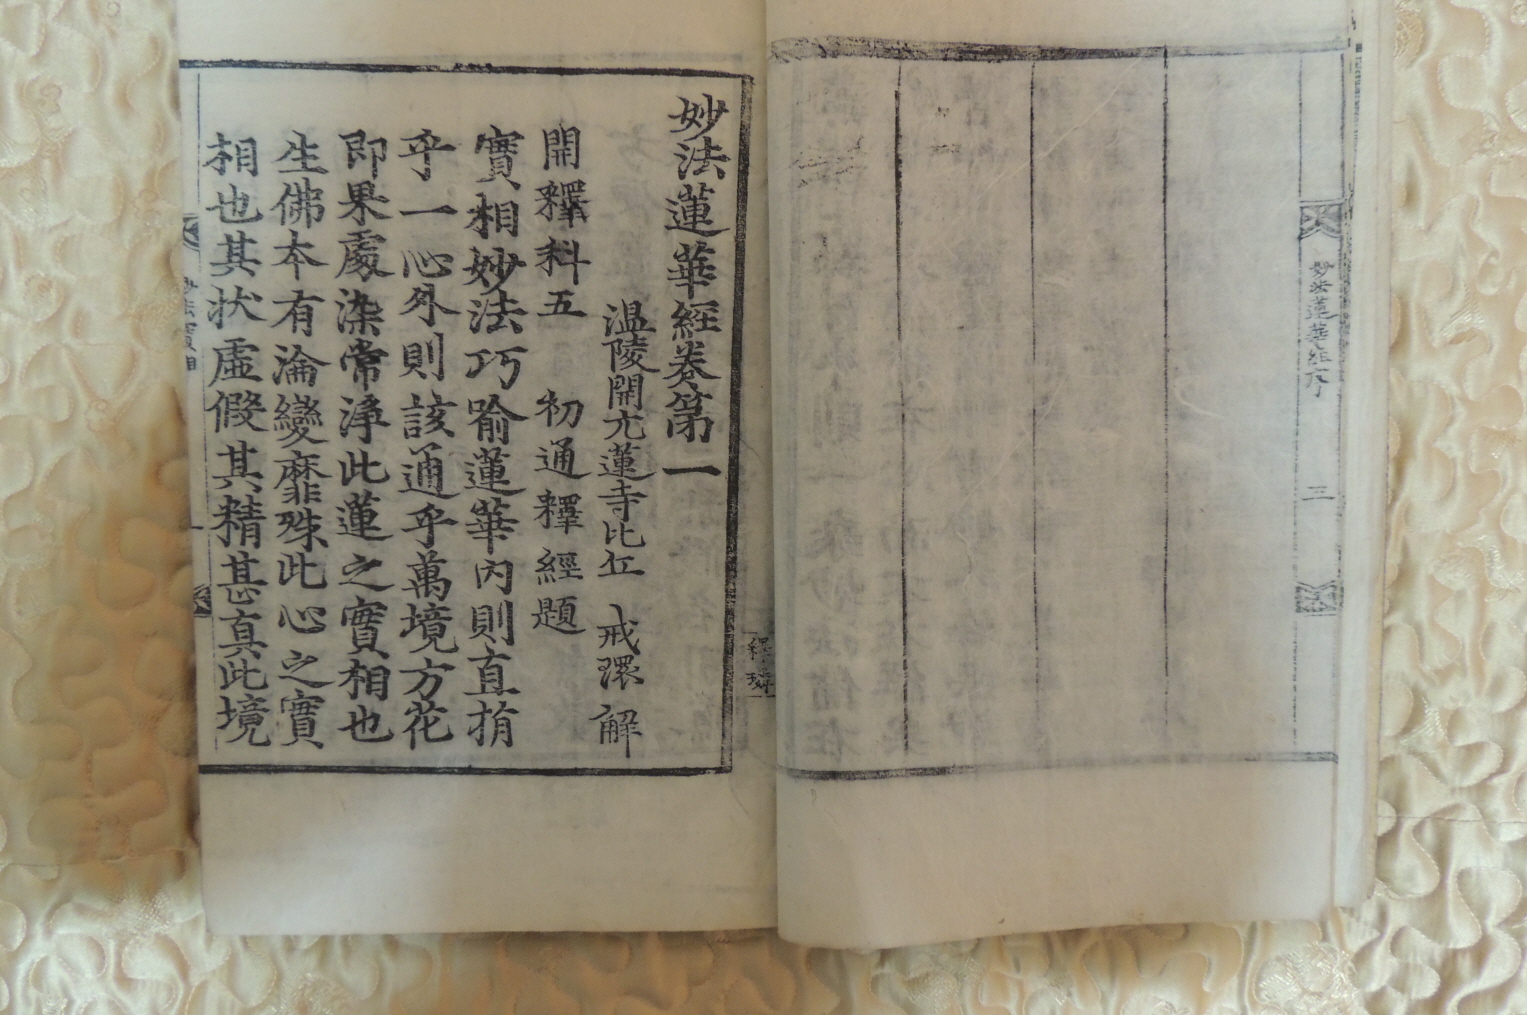 妙法蓮華經序
三
妙法蓮華經卷第一
温陵開元蓮寺比丘 戒環 解
開釋科五 初通釋經題
實相妙法巧喻蓮華内則直指
乎一心外則該通乎萬境方花
即果處染常淨此蓮之實相也
生佛本有淪變靡殊此心之實
相也其狀虛假其精甚真此境
妙法實相
一